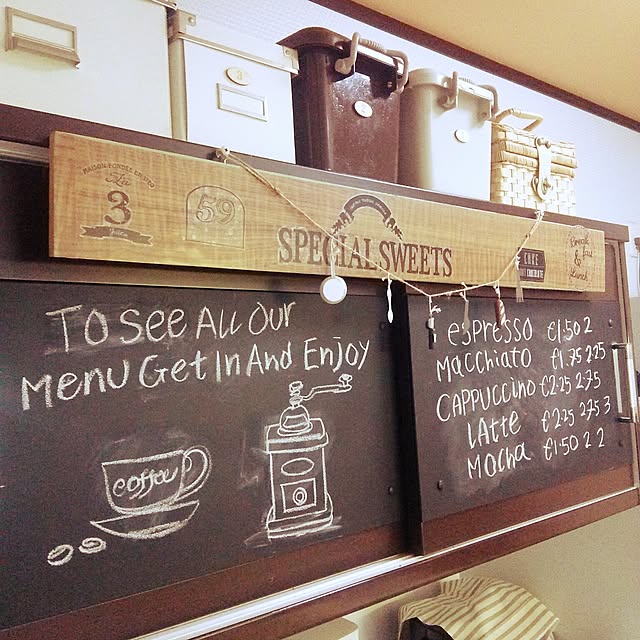 3
59
SPECIAL SWEETS
CAKE
CHOCOLATE
To see All Our
Menu Get In And Enjoy
coffee
espresso €1.50 2
Macchiato €1.75 2.25
CAPPUCCINO €2.25 2.75
lAtte €2.25 2.75 3
Mocha €1.50 2 2